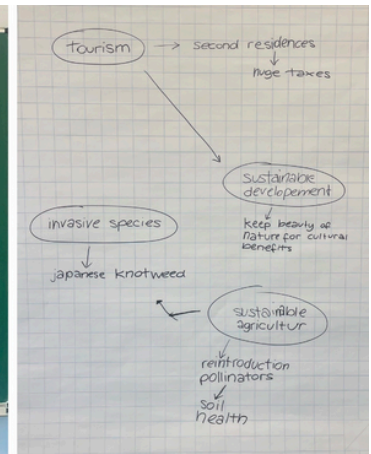 tourism
second residences
huge taxes
sustainable
developement
keep beauty of
nature for cultural
benefits
invasive species
japanese knotweed
sustainable
agricultur
reintroduction
pollinators
soil
health